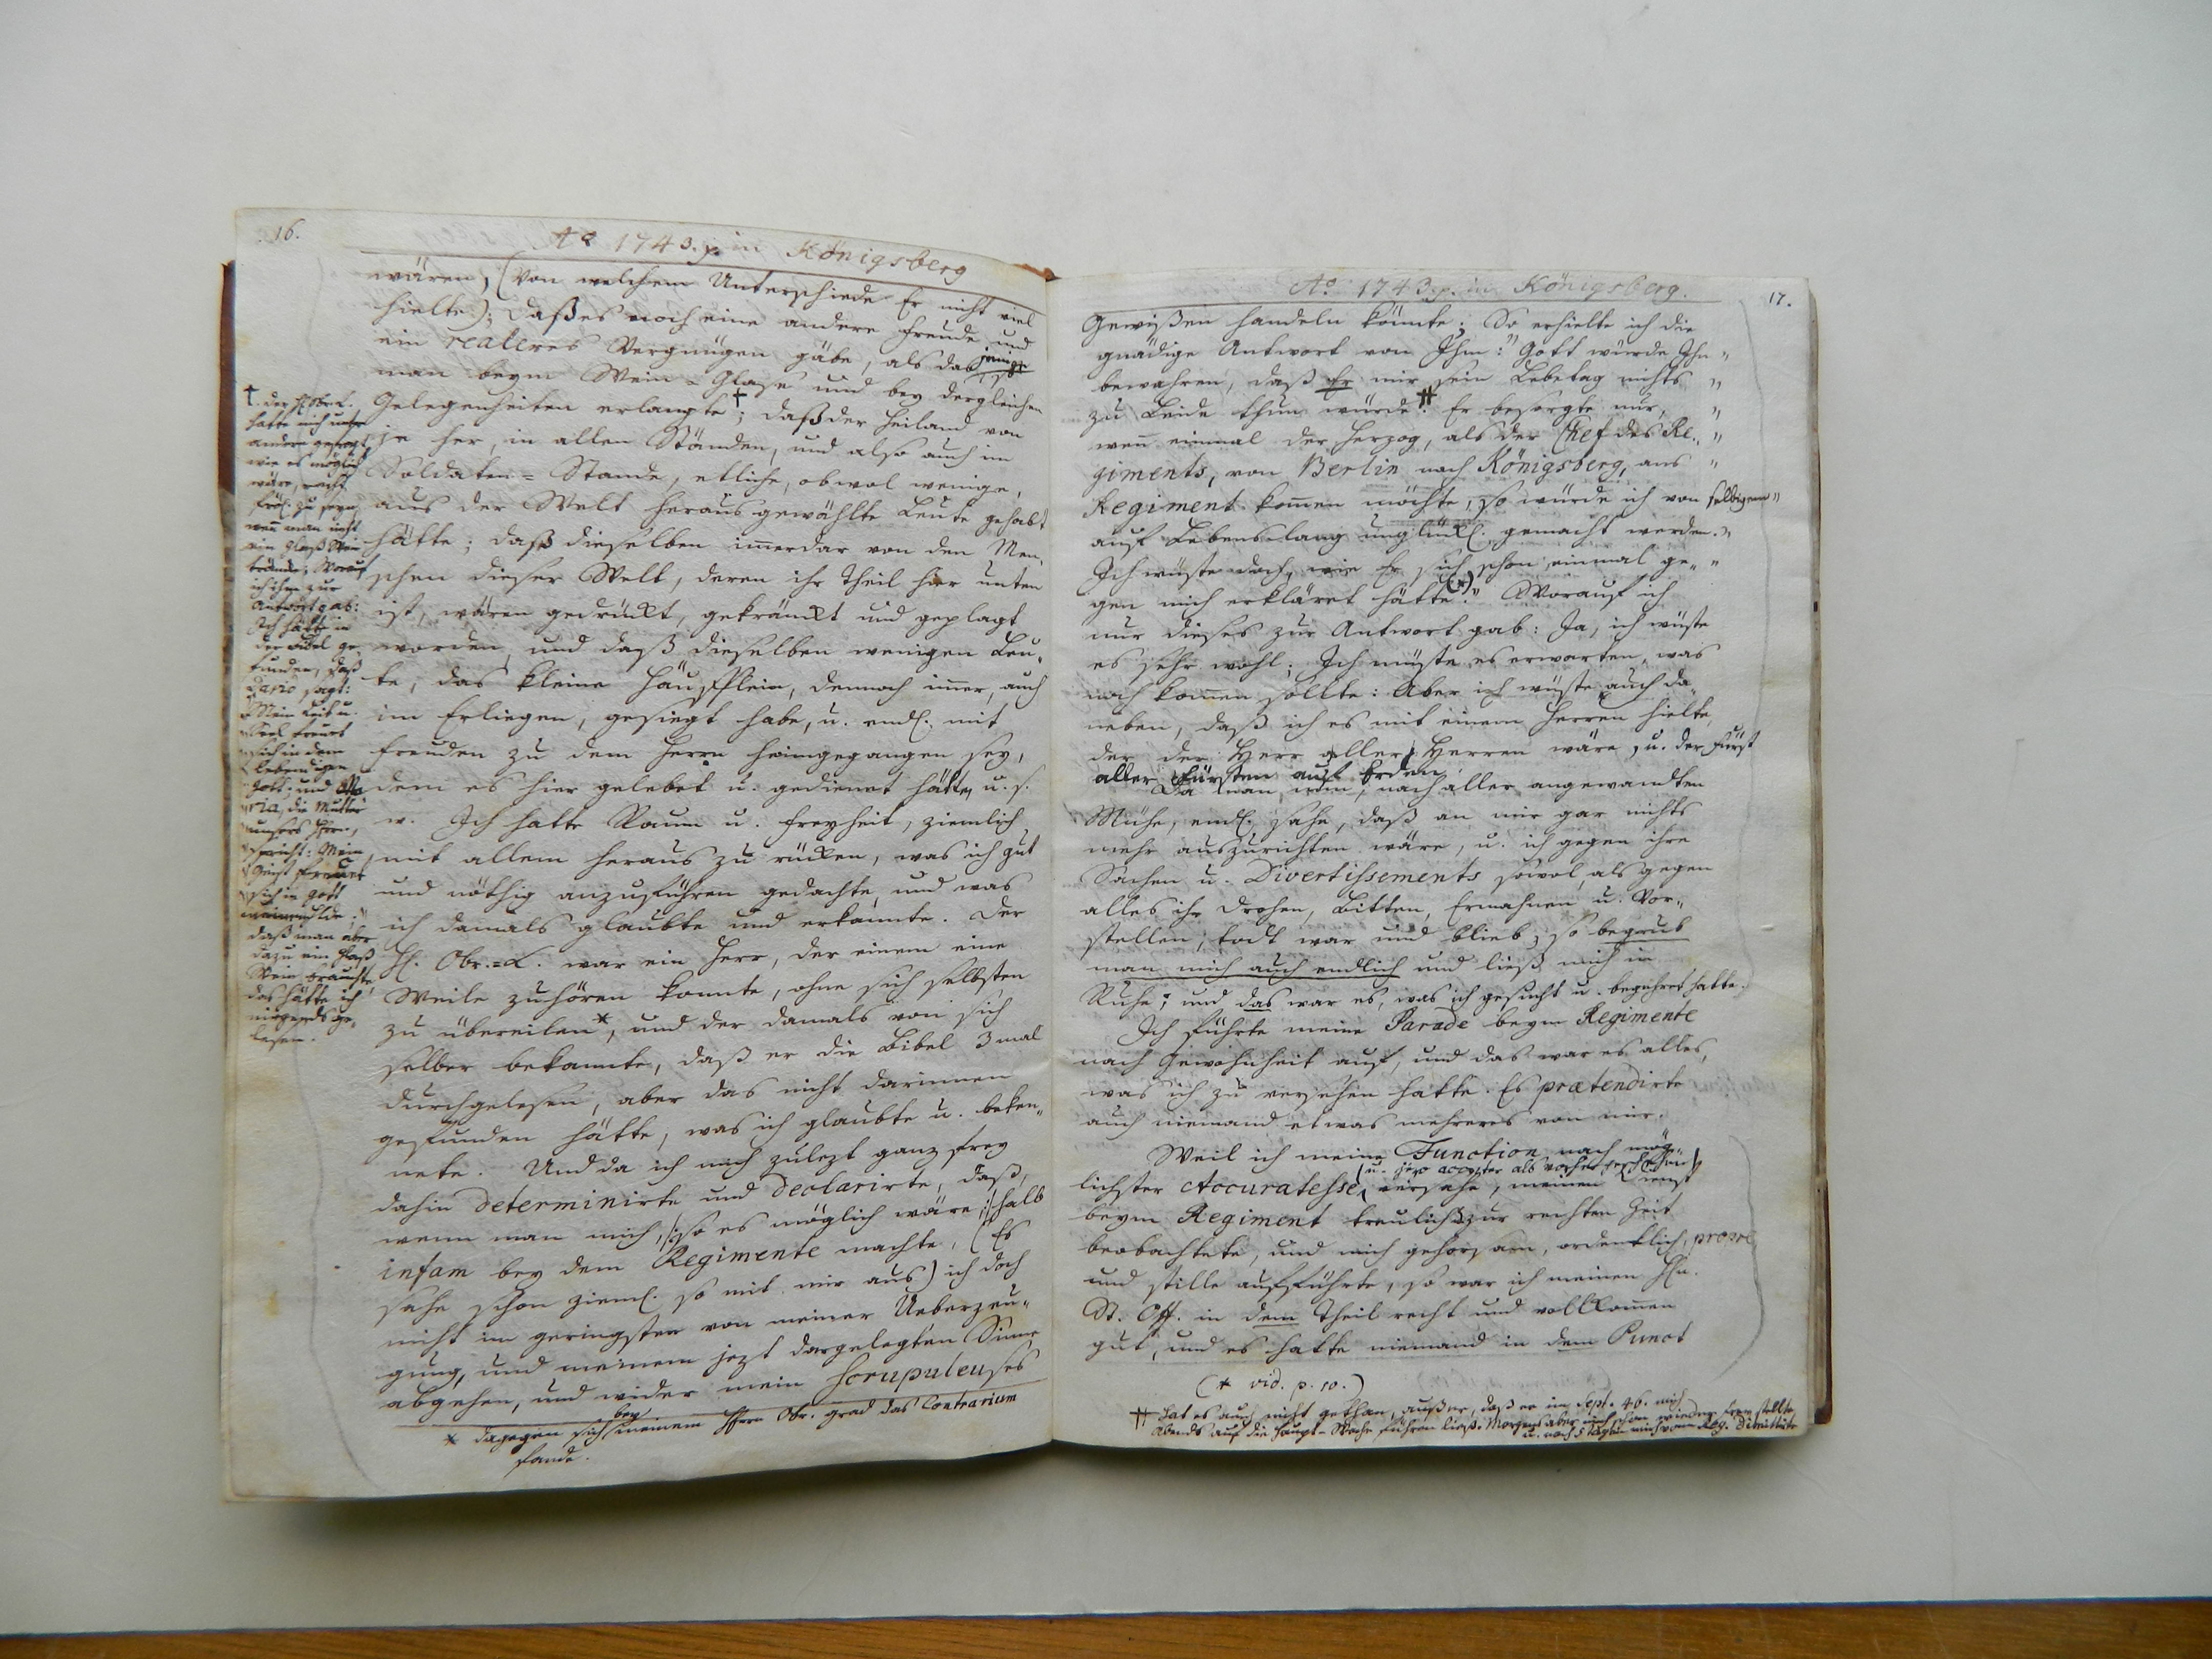 16.
Aº 1743. p. in Königsberg
wären, (von welchem Unterschiede Er nicht viel
hielte); daß es noch eine andere Freude und
ein realeres Vergnügen gäbe, als dasjenige, so
man beym Wein-Glase und bey dergleichen
Gelegenheiten erlangte†; daß der Heiland von
je her, in allen Ständen, und also auch im
Soldaten-Stande, etliche, obwol wenige,
aus der Welt herausgewählte Leute gehabt
hätte; daß dieselben im̄erdar von den Men„
schen dieser Welt, deren ihr Theil hier unten
ist, wären gedrückt, gekränckt und geplagt
worden, und daß dieselben wenigen Leu„
te, das kleine Häufflein, dennoch im̄er, auch
im Erliegen, gesiegt habe, u. endl. mit
Freuden zu dem Herrn heimgegangen sey,
dem es hier gelebet u. gedienet hätte, u. s.
w. Ich hatte Raum u. Freyheit, ziemlich
mit allem heraus zu rücken, was ich gut
und nöthig anzuführen gedachte, und was
ich damals glaubte und erkannte. Der
H. Obr.=L. war ein Herr, der einem eine
Weile zuhören konnte, ohne sich selbsten
zu übereilen*, und der damals von sich
selber bekannte, daß er die Bibel 3 mal
durchgelesen, aber das nicht darinnen
gefunden hätte, was ich glaubte u. beken„
nete. Und da ich mich zulezt ganz frey
dahin determinirte und declarirte, daß,
wenn man mich, /:so es möglich wäre:/ halb
infam bey dem Regimente machte, (Es
sahe schon zieml. so mit mir aus) ich doch
nicht im geringsten von meiner Ueberzeu„
gung, und meinem jezt dargelegten Sinne
abgehen, und wider mein scrupuleuses
* dagegen sich bey meinem Herrn Obr. grad das Contrarium
fande.
† der H. Obr. L.
hatte mich unter
andern gefragt,
wie es möglich
wäre, recht
fröl. zu seyn,
weñ man nicht
ein Glaß Wein
tränke; Worauf
ich ihm zur
Antwort gab:
Ich hätte in
der Bibel ge„
funden, daß
David sagt:
„Mein Leib u.
„Seel freuet
„sich in dem
„lebendigen
„Gott; und Ma„
„ria, die Mutter
„unsers Herrn,
„spricht: Mein
„Geist freuet
„sich in Gott
meines Hlds;„
daß man aber
dazu ein Glaß
Wein brauchte,
das hätte ich
nirgends ge„
lesen.
Aº 1743. p. in Königsberg.
17.
Gewißen handeln könnte; So erhielte ich die
gnädige Antwort von Ihm: „Gott würde Ihn„
bewahren, daß Er mir sein Lebetag nichts „
zu Leide thun würde.# Er besorgte nur, „
weñ einmal der Herzog, als der Chef des Re„ „
giments, von Berlin nach Königsberg, ans „
Regiment kom̄en möchte, so würde ich von selbigem„
auf Lebenslang unglückl. gemacht werden. „
Ich wüste doch, wie Er sich schon einmal ge„ „
gen mich erkläret hätte.(*)“ Worauf ich
nur dieses zur Antwort gab: Ja, ich wüste
es sehr wohl; Ich müste es erwarten, was
noch kom̄en sollte: Aber ich wüste auch da„
neben, daß ich es mit einem Herren hielte,
der der Herr aller Herren wäre, u. der Fürst
aller Fürsten auf Erden.
Da man nun, nach aller angewandten
Mühe, endl. sahe, daß an mir gar nichts
mehr auszurichten wäre, u. ich gegen ihre
Sachen u. Divertissements sowol, als gegen
alles ihr Drohen, Bitten, Ermahnen u. Vor„
stellen, todt war und blieb; so begrub
man mich auch endlich und ließ mich in
Ruhe; und das war es, was ich gesucht u. begehret hatte.
Ich führte meine Parade beym Regimente
nach Gewohnheit auf, und das war es alles,
was ich zu versehen hatte. Es prætendirte
auch niemand etwas mehreres von mir.
Weil ich meine Function nach mög„
lichster Accuratesse, versahe, meinen Dienst
beym Regiment treulich zur rechten Zeit
beobachtete, und mich gehorsam, ordentlich,
und stille aufführte, so war ich meinen HH.
St. Off. in dem Theil recht und vollkom̄en
gut, und es hatte niemand in dem Punct
(* vid. p. 10.)
# Hat es auch nicht gethan, außer, daß er im Sept. 46. mich
Abends auf die Haupt-Wache führen ließ, Morgens aber mich schon wieder frey stellte,
u. nach 5 Tagen mich vom Reg. dimittirte